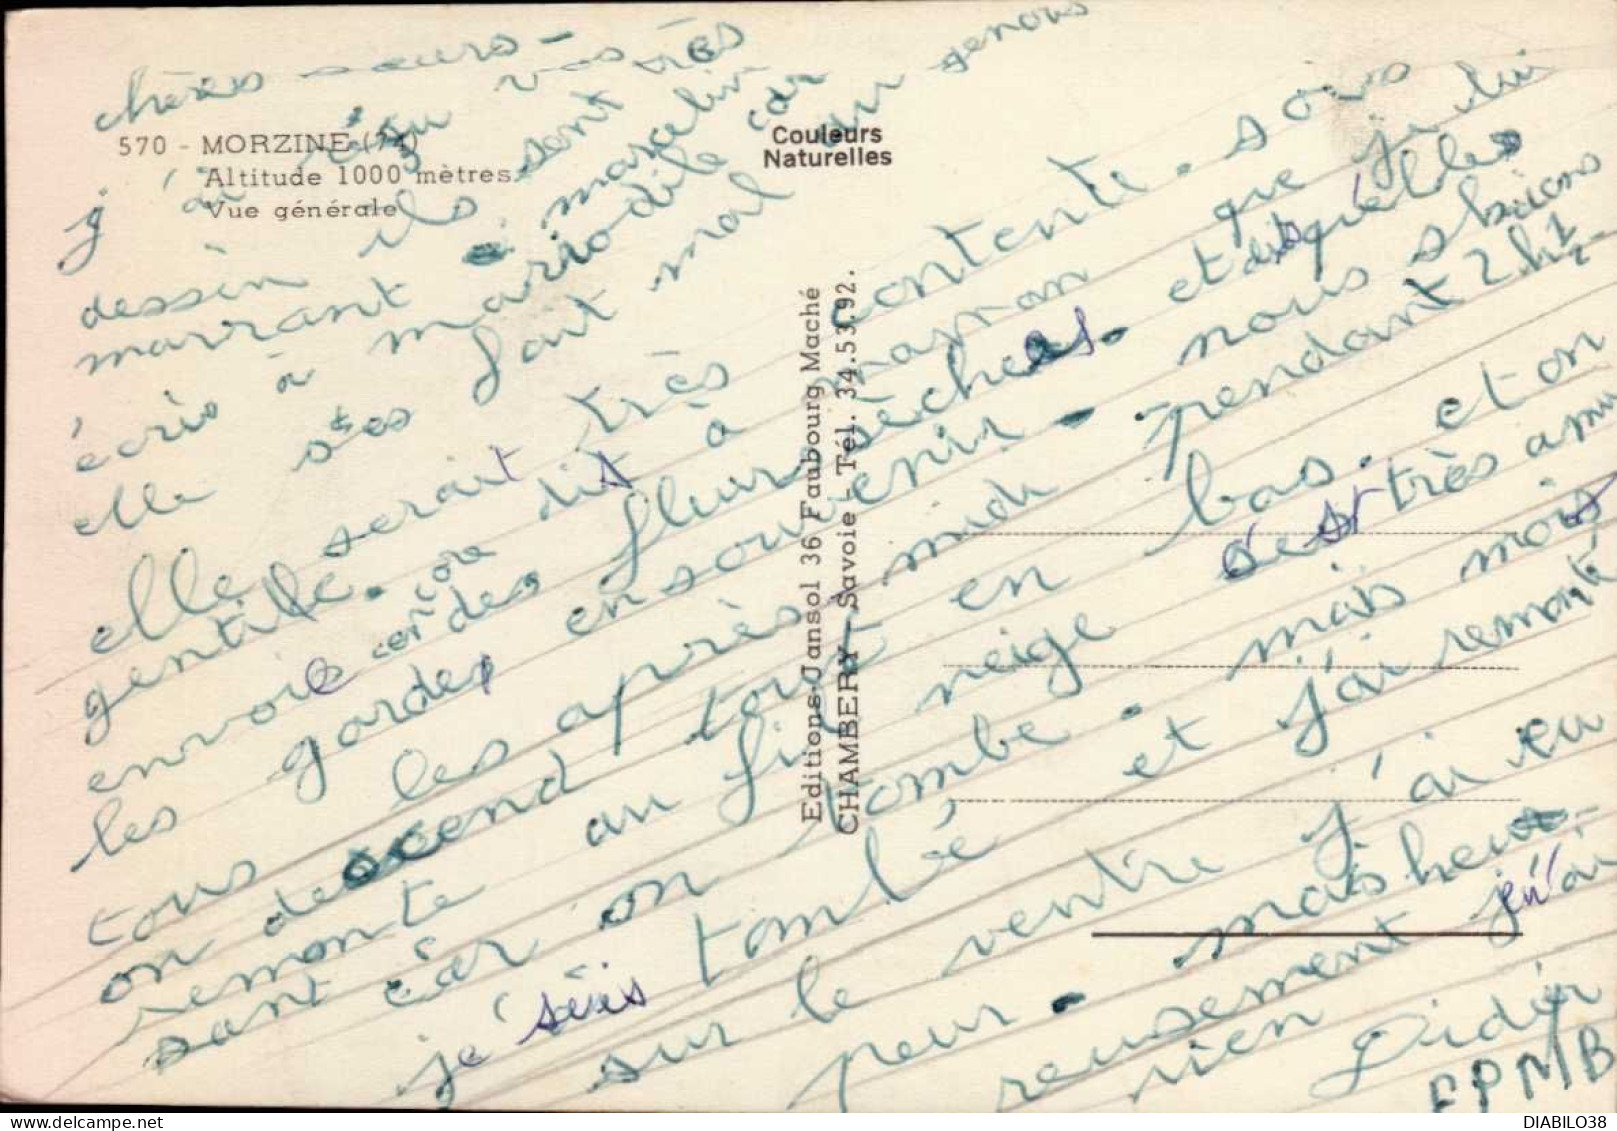 570 - MORZINE (74)
Altitude 1000 mètres
Vue générale
Couleurs
Naturelles
Editions Jansol 36 Faubourg Maché
CHAMBERY - Savoie - Tél. 34.53.92.
chères sœurs -
j'ai reçu vos
dessin ils sont très
marrant
écris à mariodile car
elle s'es fait mal au genous
elle serait très contente. sois
gentille. dit à magnon que je lui
envoie encore des fleurs séchées. et dis quélles
les gardes en souvenir - nous skiions
tous les après midi pendant 2 h ½
on descend tout en bas. et on
remonte au fil neige c'est très amu
sant car on tombe. mais mois
je suis tombé et j'ai remonté
sur le ventre j'ai eu
peur - mais heu-
reusement j'en'ai
rien Didier
EPMB
DIABILO38